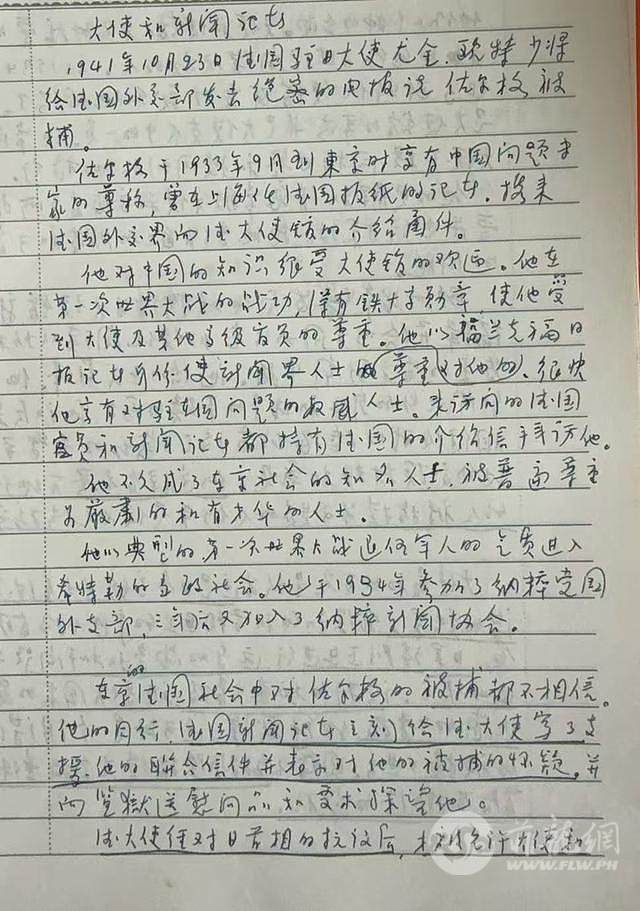 大使和新闻记者
1941年10月23日 德国驻日大使尤金.欧特少将
给德国外交部发去绝密的电报说佐尔格被
捕。
佐尔格于1933年9月到東京时享有中国问题专
家的尊称，曾在上海任德国报纸的记者，携来
德国外交界向德大使馆的介绍函件。
他对中国的知识很受大使馆的欢迎。他在
第一次世界大战的战功，保有鉄十字勋章，使他受
到大使及其他高级官员的尊重。他以福兰克福日
报记者身份使新闻界人士的尊重对他的，很快
他享有对驻在国问题的权威人士。来访问的德国
官员和新闻记者都持有德国的介绍信拜访他。
他不久成了东京社会的知名人士，被普高尊重
为严肃的和有才华的人士。
他以典型的第一次世界大战退伍军人的气质进入
希特勒的立政社会。他于1934年参加了纳粹党国
外支部，三年后又加入了纳粹新闻协会。
东京的德国社会中对佐尔格的被捕都不相信。
他的同行，德国新闻记者立刻给德大使写了支
援他的联合信件并表示对他的被捕的怀疑，并
向监獄送慰问品和要求探望他。
德大使经对日首相的抗议后，才被允许大使和
菲龍網
WWW.FLW.PH